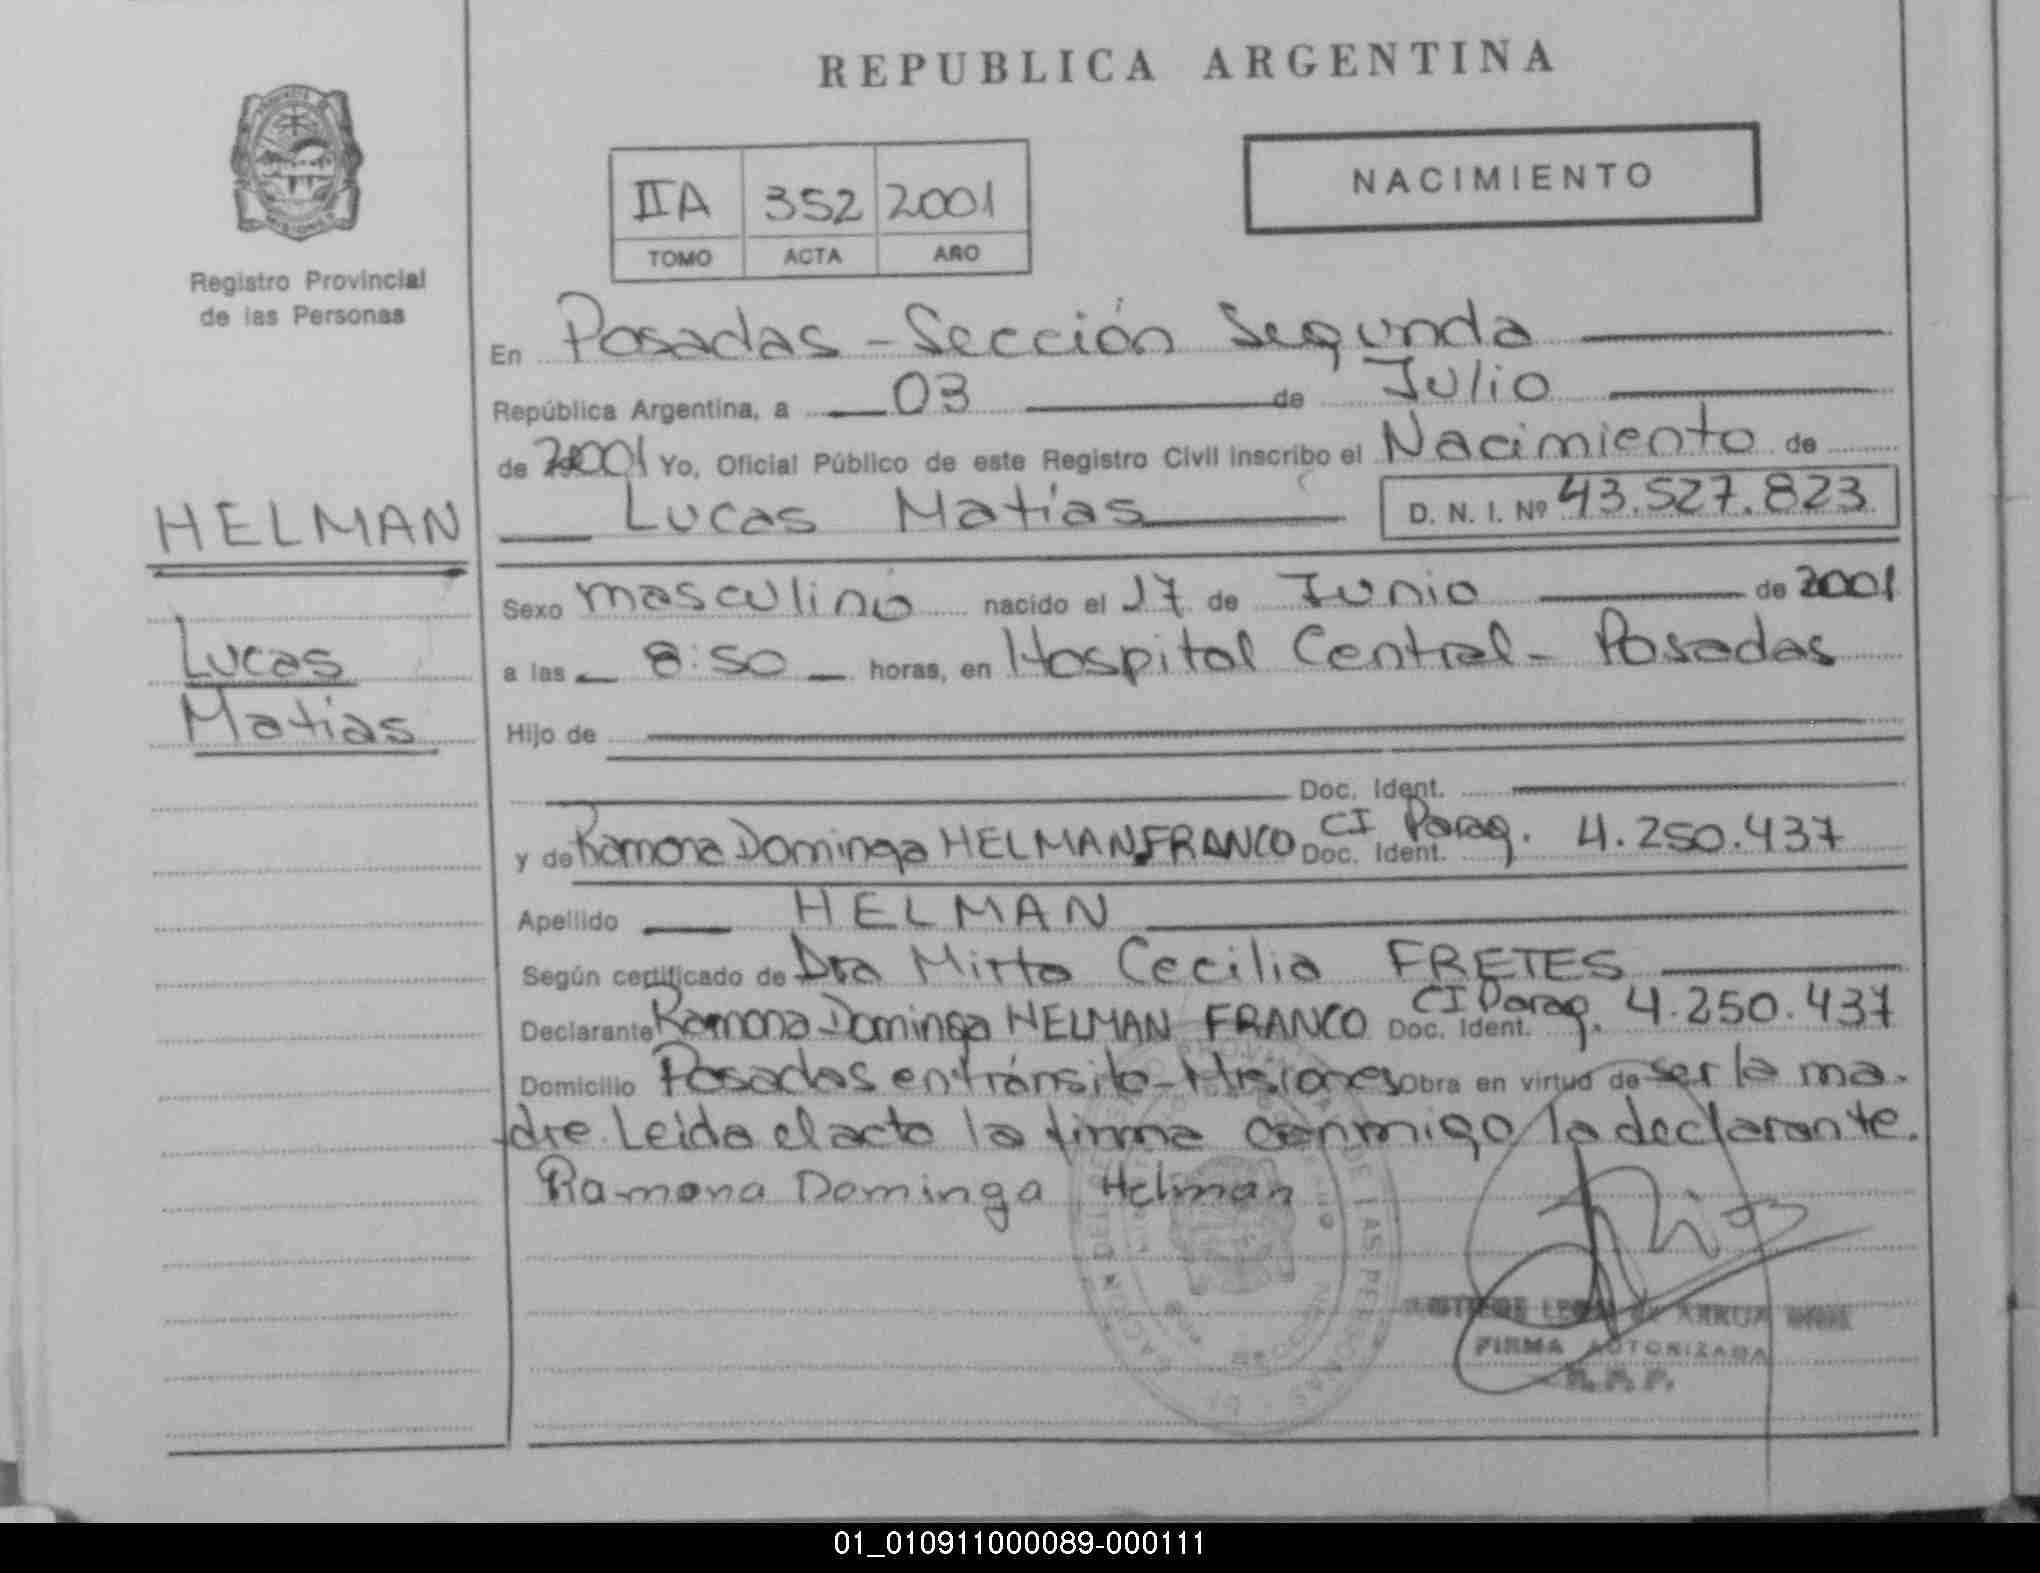 REPUBLICA ARGENTINA
IIA 352 2001
TOMO ACTA AÑO
NACIMIENTO
Registro Provincial
de las Personas
HELMAN
Lucas
Matías
En Posadas - Sección Segunda
República Argentina, a 03 de Julio
de 2001 Yo, Oficial Público de este Registro Civil inscribo el Nacimiento de
Lucas Matías D. N. I. Nº 43.527.823
Sexo masculino nacido el 17 de Junio de 2001
a las 8:50 horas, en Hospital Central - Posadas
Hijo de
Doc. Ident.
y de Ramona Dominga HELMAN FRANCO Doc. Ident. CI Parag. 4.250.437
Apellido HELMAN
Según certificado de Dra Mirta Cecilia FRETES
Declarante Ramona Dominga HELMAN FRANCO Doc. Ident. CI Parag. 4.250.437
Domicilio Posadas en tránsito - Misiones Obra en virtud de ser la ma-
dre. Leida el acta la firma conmigo la declarante.
Ramona Dominga Helman
FIRMA AUTORIZADA
R. P. P.
01_010911000089-000111